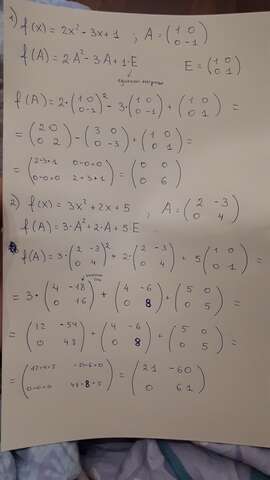 1) f(x) = 2x² - 3x + 1 ; A = (1 0
0 -1)
f(A) = 2A² - 3A + 1·E E = (1 0
0 1)
f(A) = 2·(1 0
0 -1)² - 3(1 0
0 -1) + (1 0
0 1) =
= (2 0
0 2) - (3 0
0 -3) + (1 0
0 1) =
= (2-3+1 0-0+0
0-0+0 2+3+1) = (0 0
0 6)
2) f(x) = 3x² + 2x + 5 ; A = (2 -3
0 4)
f(A) = 3·A² + 2·A + 5E
f(A) = 3·(2 -3
0 4)² + 2·(2 -3
0 4) + 5(1 0
0 1) =
= 3·(4 -18
0 16) + (4 -6
0 8) + (5 0
0 5) =
= (12 -54
0 48) + (4 -6
0 8) + (5 0
0 5) =
= (12+4+5 -54-6+0
0+0+0 48+8+5) = (21 -60
0 61)